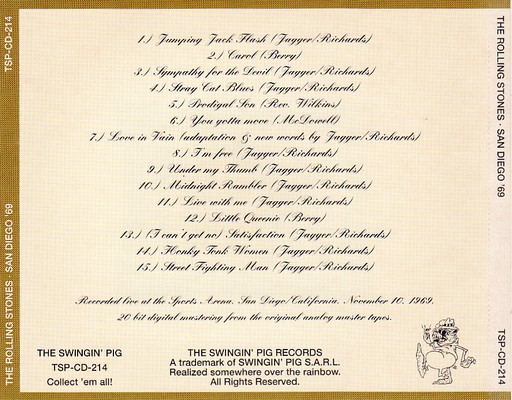 TSP-CD-214
THE ROLLING STONES · SAN DIEGO '69
1.) Jumping Jack Flash (Jagger/Richards)
2.) Carol (Berry)
3.) Sympathy for the Devil (Jagger/Richards)
4.) Stray Cat Blues (Jagger/Richards)
5.) Prodigal Son (Rev. Wilkins)
6.) You gotta move (McDowell)
7.) Love in Vain (adaptation & new words by Jagger/Richards)
8.) I'm free (Jagger/Richards)
9.) Under my Thumb (Jagger/Richards)
10.) Midnight Rambler (Jagger/Richards)
11.) Live with me (Jagger/Richards)
12.) Little Queenie (Berry)
13.) (I can't get no) Satisfaction (Jagger/Richards)
14.) Honky Tonk Women (Jagger/Richards)
15.) Street Fighting Man (Jagger/Richards)
Recorded live at the Sports Arena, San Diego/California, November 10, 1969.
20 bit digital mastering from the original analog master tapes.
THE SWINGIN' PIG
TSP-CD-214
Collect 'em all!
THE SWINGIN' PIG RECORDS
A trademark of SWINGIN' PIG S.A.R.L.
Realized somewhere over the rainbow.
All Rights Reserved.
THE ROLLING STONES · SAN DIEGO '69
TSP-CD-214